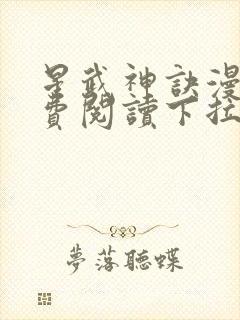 星武神訣漫
費閱讀下拉
夢落聽蝶